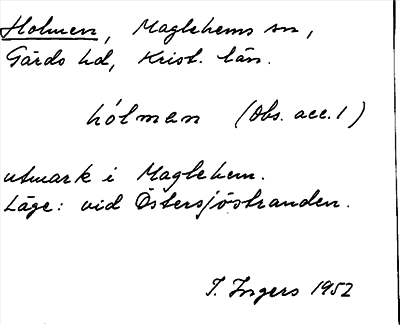 Holmen, Maglehems sn,
Gärds hd, Krist. län.
hólman (Obs. acc. 1)
utmark i Maglehem.
Läge: vid Östersjöstranden.
I. Ingers 1952